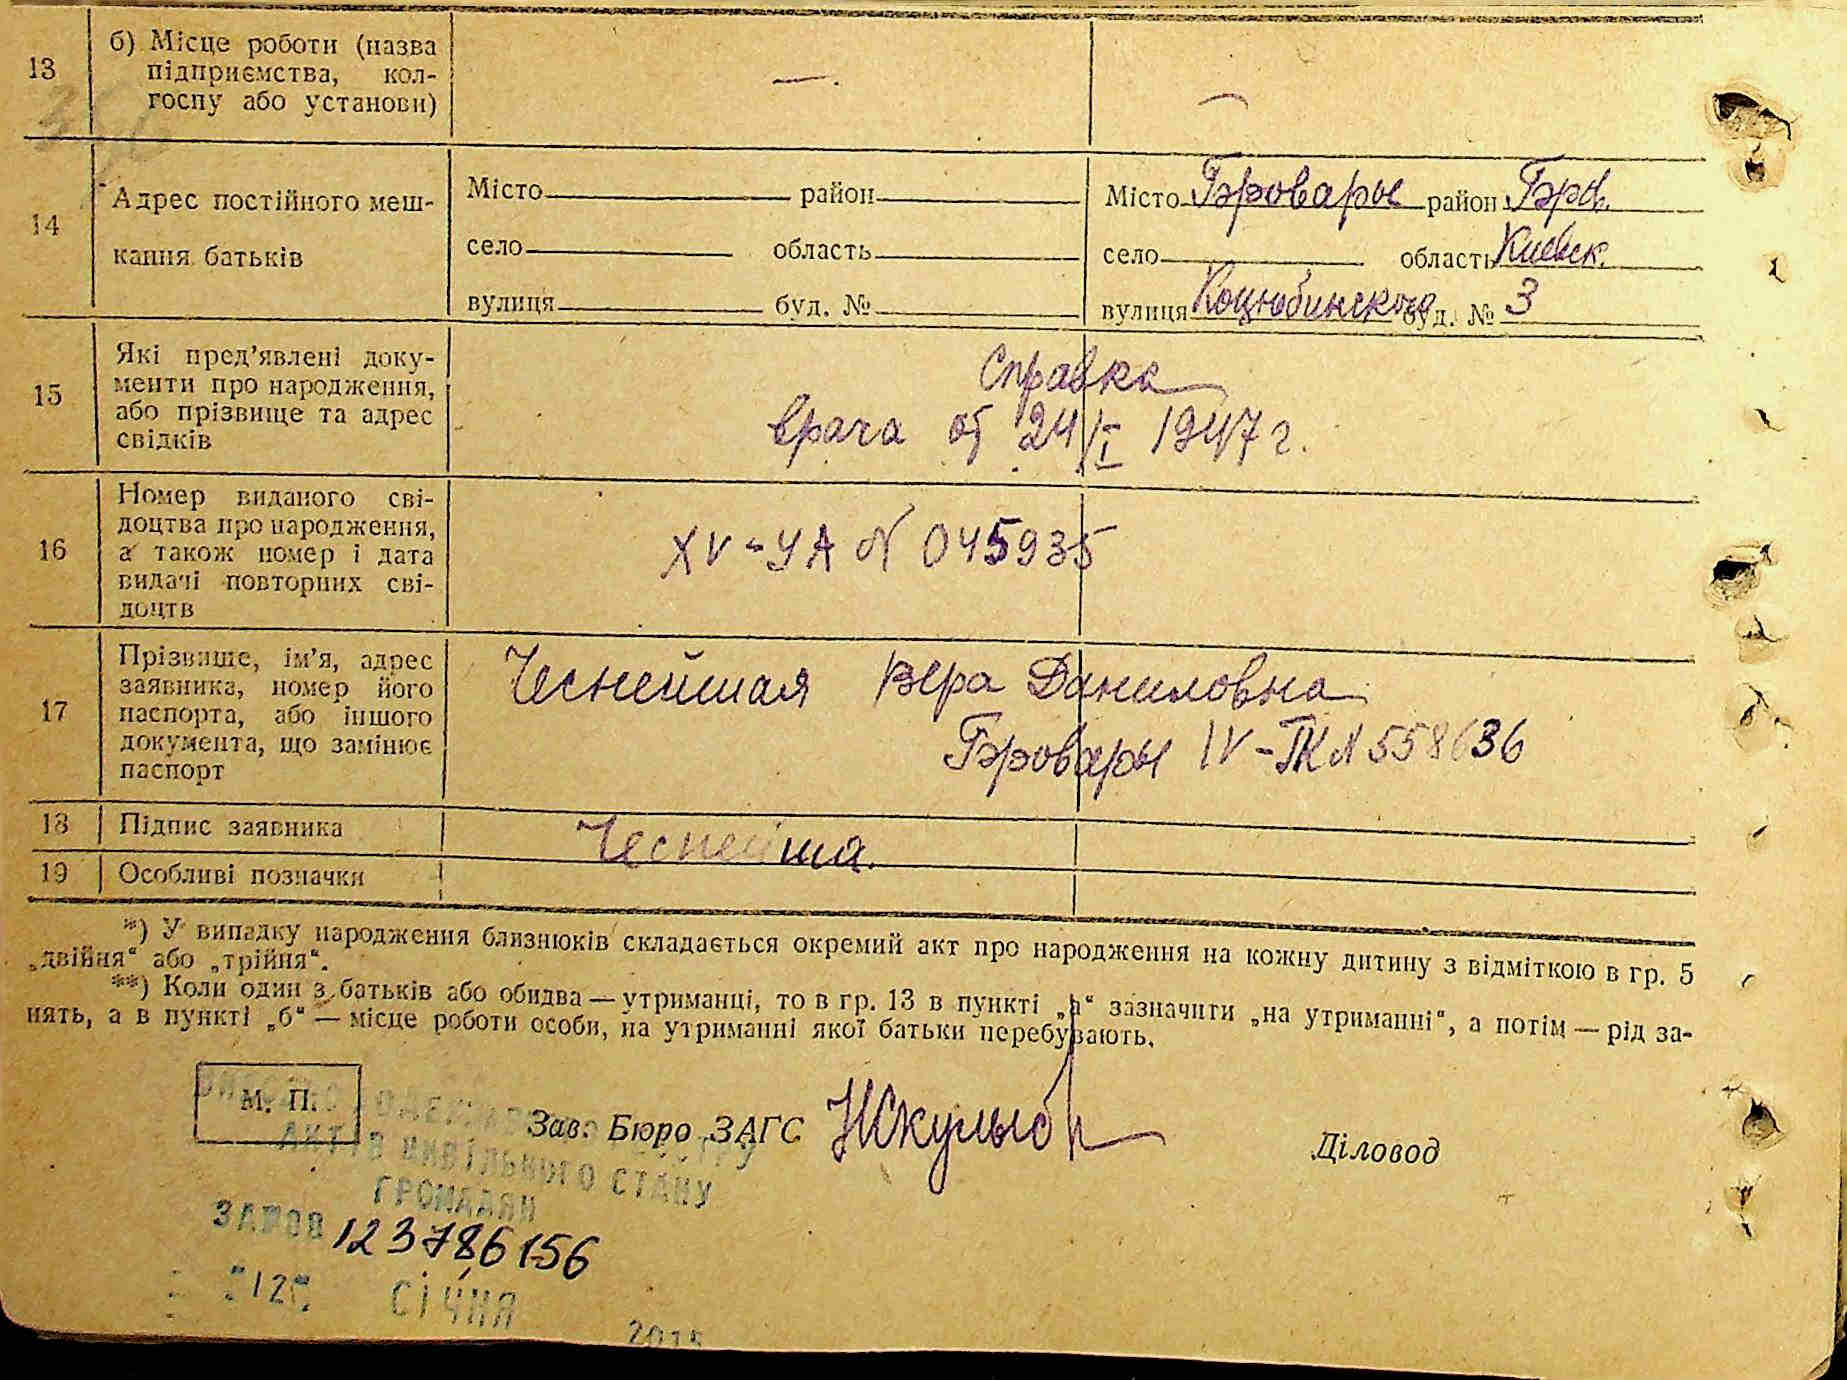 13
б) Місце роботи (назва
підприємства, кол-
госпу або установи)
—.
—
14
Адрес постійного меш-
кання батьків
Місто район
село область
вулиця буд. №
Місто Бровары район Бров.
село область Киевск.
вулиця Коцюбинского буд. № 3
15
Які пред’явлені доку-
менти про народження,
або прізвище та адрес
свідків
Справка
врача от 24/I 1947 г.
16
Номер виданого сві-
доцтва про народження,
а також номер і дата
видачі повторних сві-
доцтв
XV-УА N 045935
17
Прізвище, ім’я, адрес
заявника, номер його
паспорта, або іншого
документа, що замінює
паспорт
Чеснейшая Вера Даниловна
Бровары IV-ПК N 558636
18
Підпис заявника
Чеснейша.
19
Особливі позначки
*) У випадку народження близнюків складається окремий акт про народження на кожну дитину з відміткою в гр. 5
„двійня“ або „трійня“.
**) Коли один з батьків або обидва — утриманці, то в гр. 13 в пункті „а“ зазначити „на утриманні“, а потім — рід за-
нять, а в пункті „б“ — місце роботи особи, на утриманні якої батьки перебувають.
М. П.
Зав. Бюро ЗАГС
Діловод
АКТІВ ЦИВІЛЬНОГО СТАНУ
ГРОМАДЯН
123786156
"12" СІЧНЯ
2015